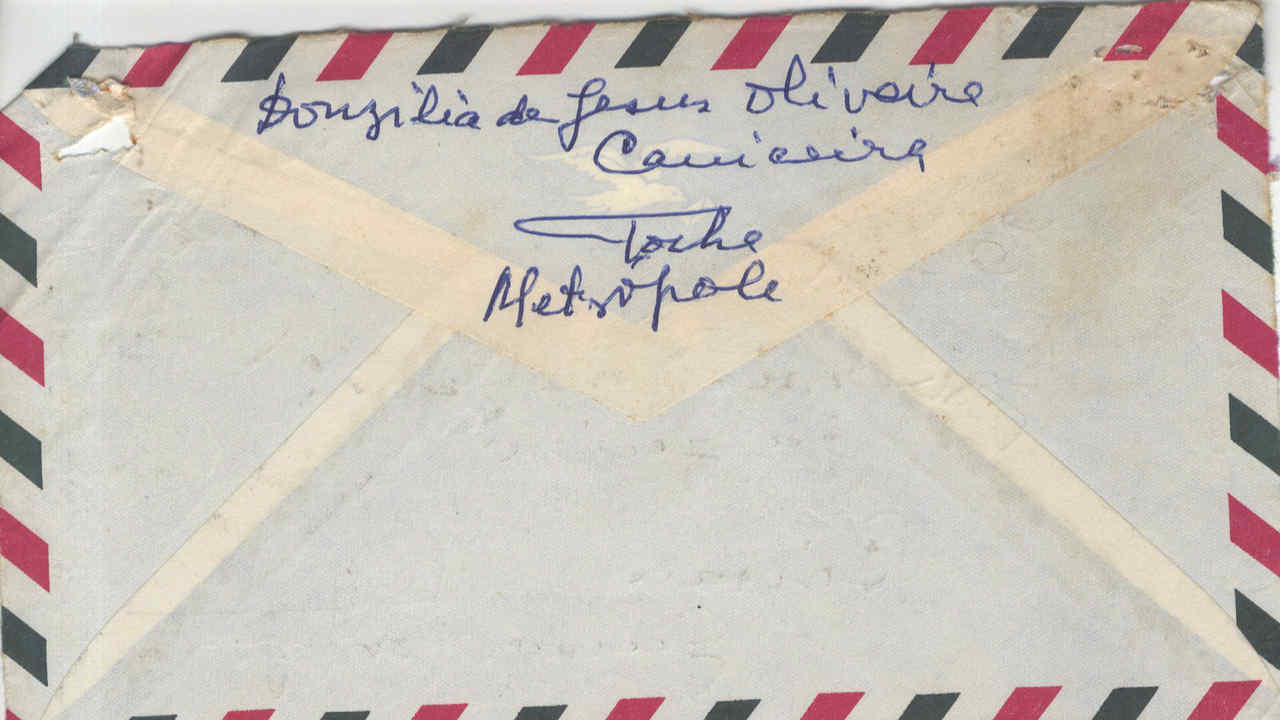 Donzilia de Jesus Oliveira
Caniceira
Tocha
Metrópole